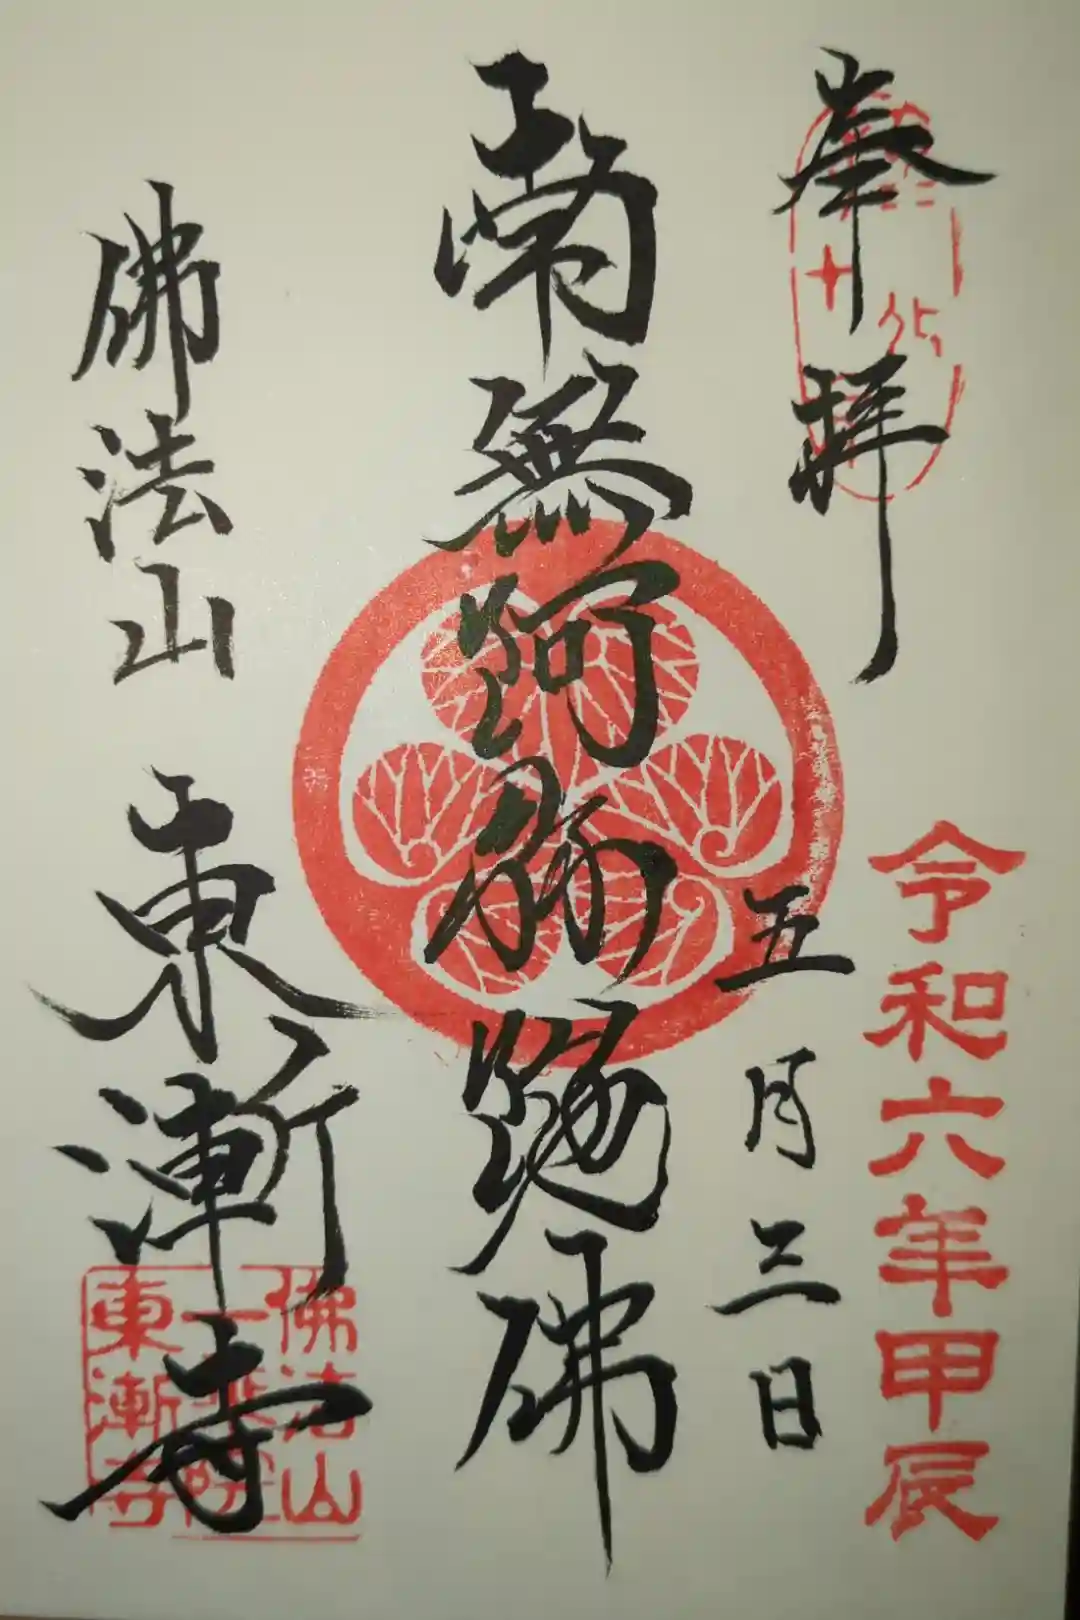 奉拝
令和六年甲辰
五月三日
南無阿弥陀佛
佛法山 東漸寺
佛法山
一乗院
東漸寺